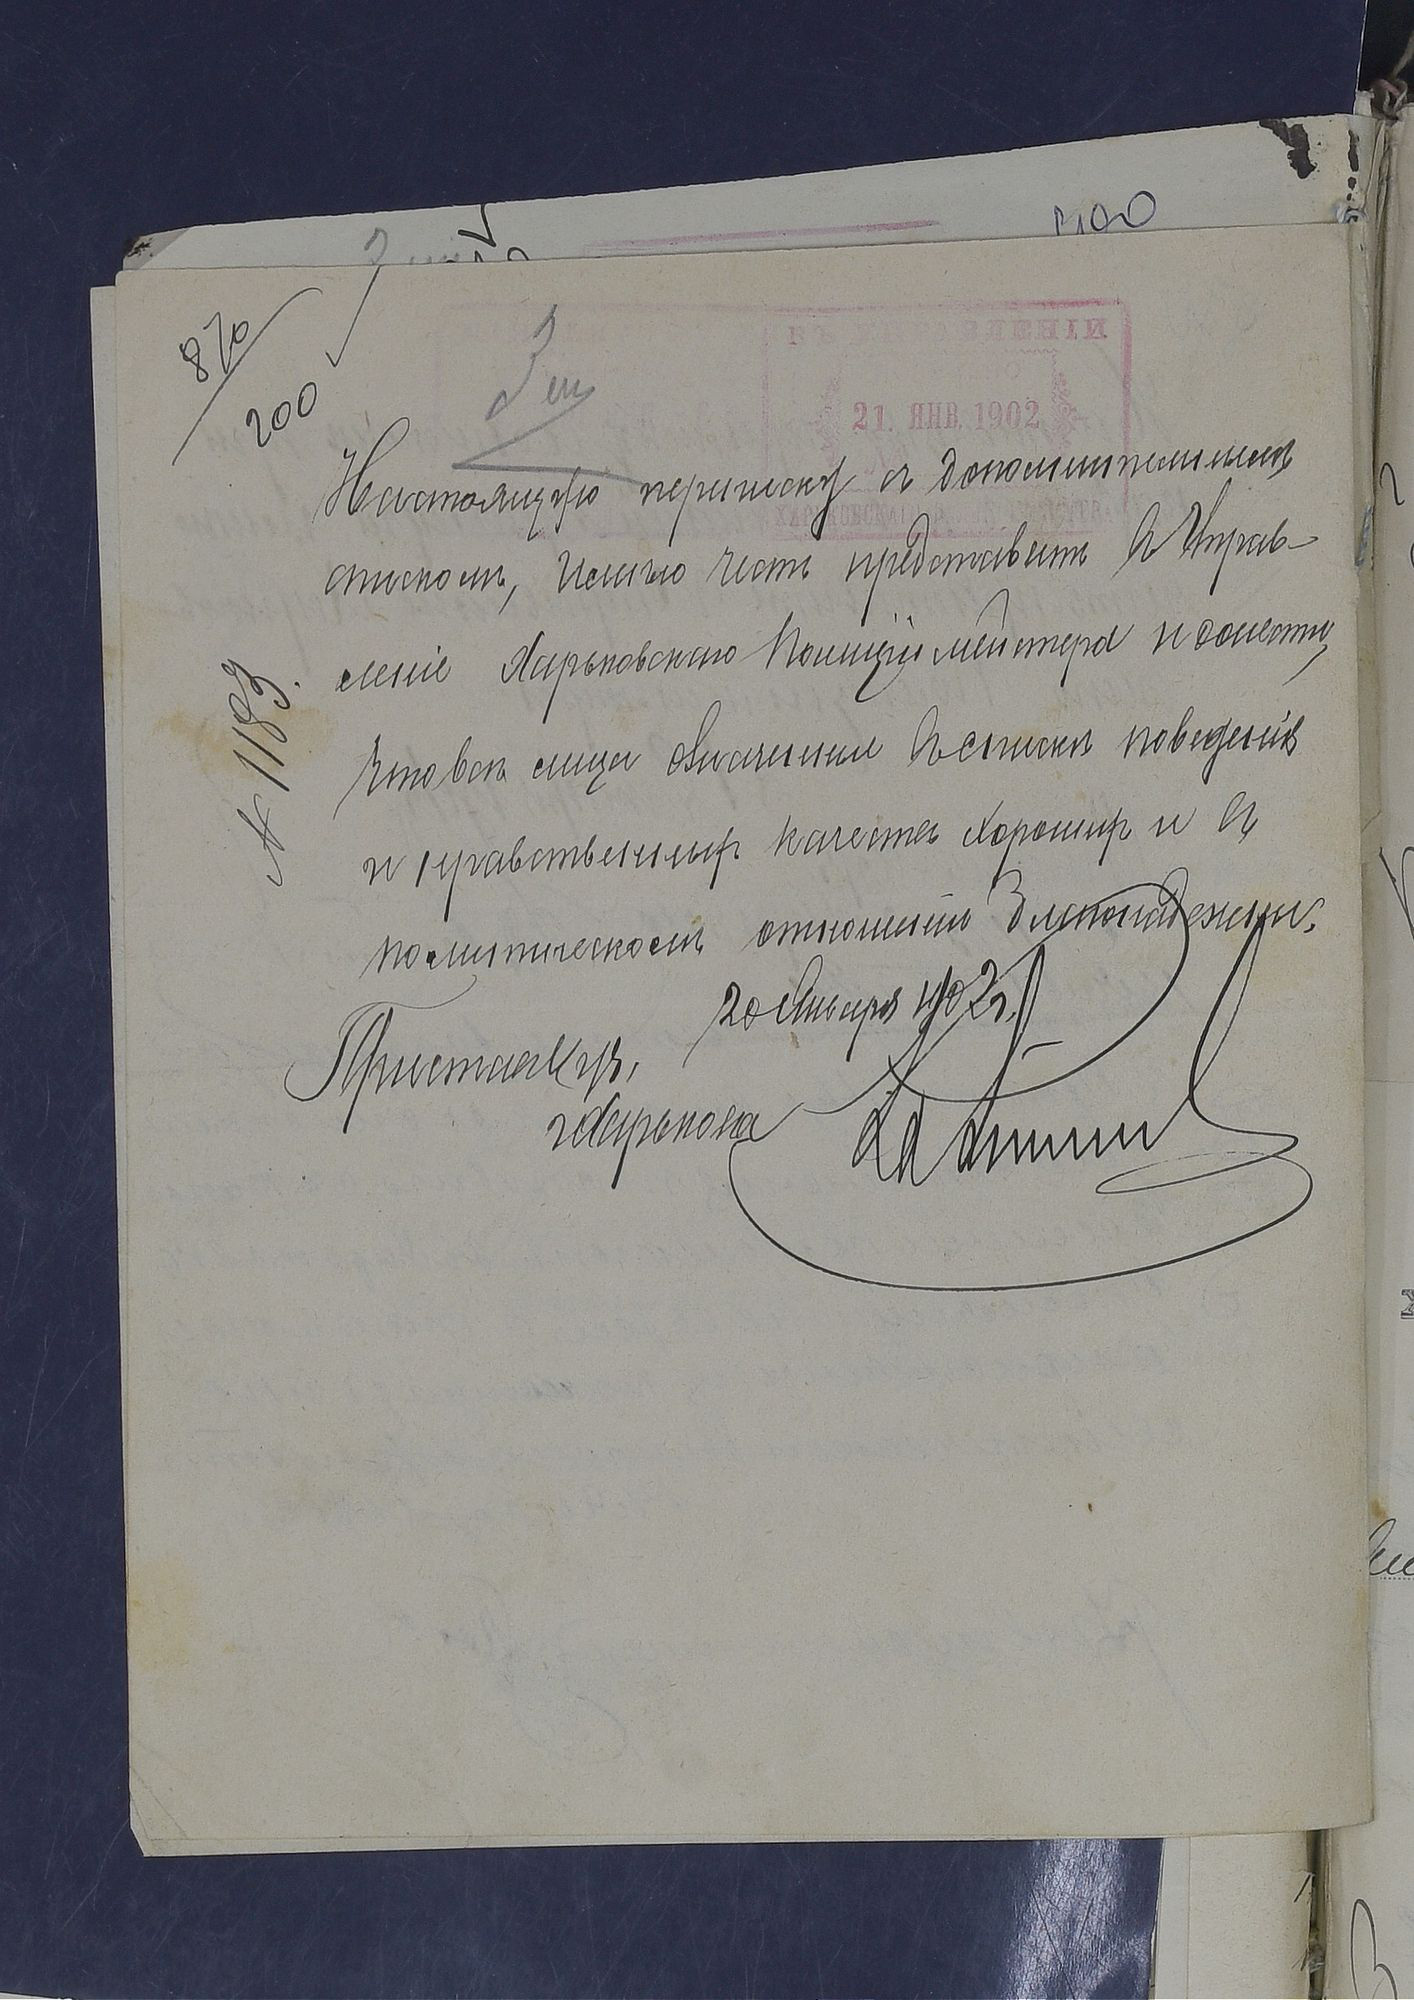 870
200
3100
21. ЯНВ. 1902
Настоящую переписку съ дополнительнымъ
спискомъ, имѣю честь представить въ Управ-
леніе Харьковскаго Полиціймейстера и донести,
что всѣ лица означенныя въ спискѣ поведенія
и нравственныхъ качествъ хорошихъ и въ
политическомъ отношеніи благонадежны.
20 Января 1902 г.
Приставъ
г. Харькова
№ 1183.